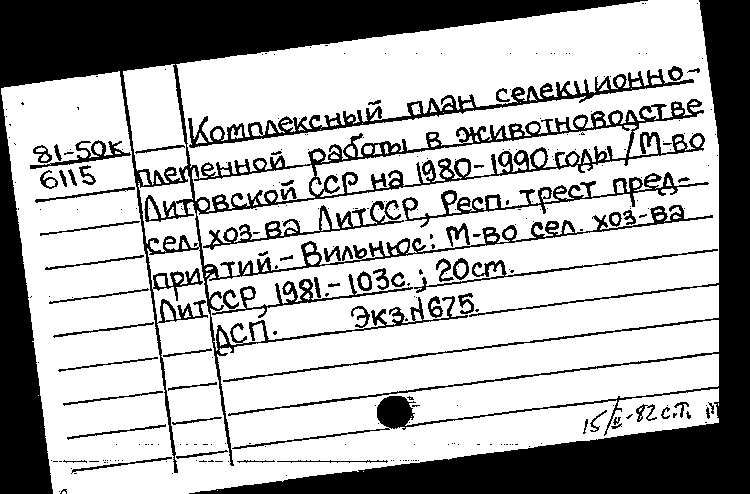 81-50к
6115
Комплексный план селекционно-
племенной работы в животноводстве
Литовской ССР на 1980-1990 годы / М-во
сел. хоз-ва ЛитССР, Респ. трест пред-
приятий.- Вильнюс: М-во сел. хоз-ва
ЛитССР, 1981.- 103с.; 20см.
ДСП. Экз.N675.
15/II-82 с.т.